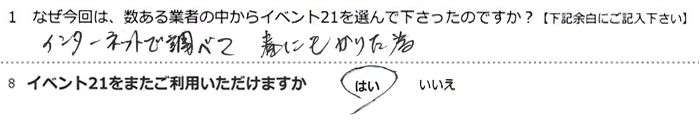 1 なぜ今回は、数ある業者の中からイベント21を選んで下さったのですか?【下記余白にご記入下さい】
インターネットで調べて 春にもかりた為
8 イベント21をまたご利用いただけますか はい いいえ